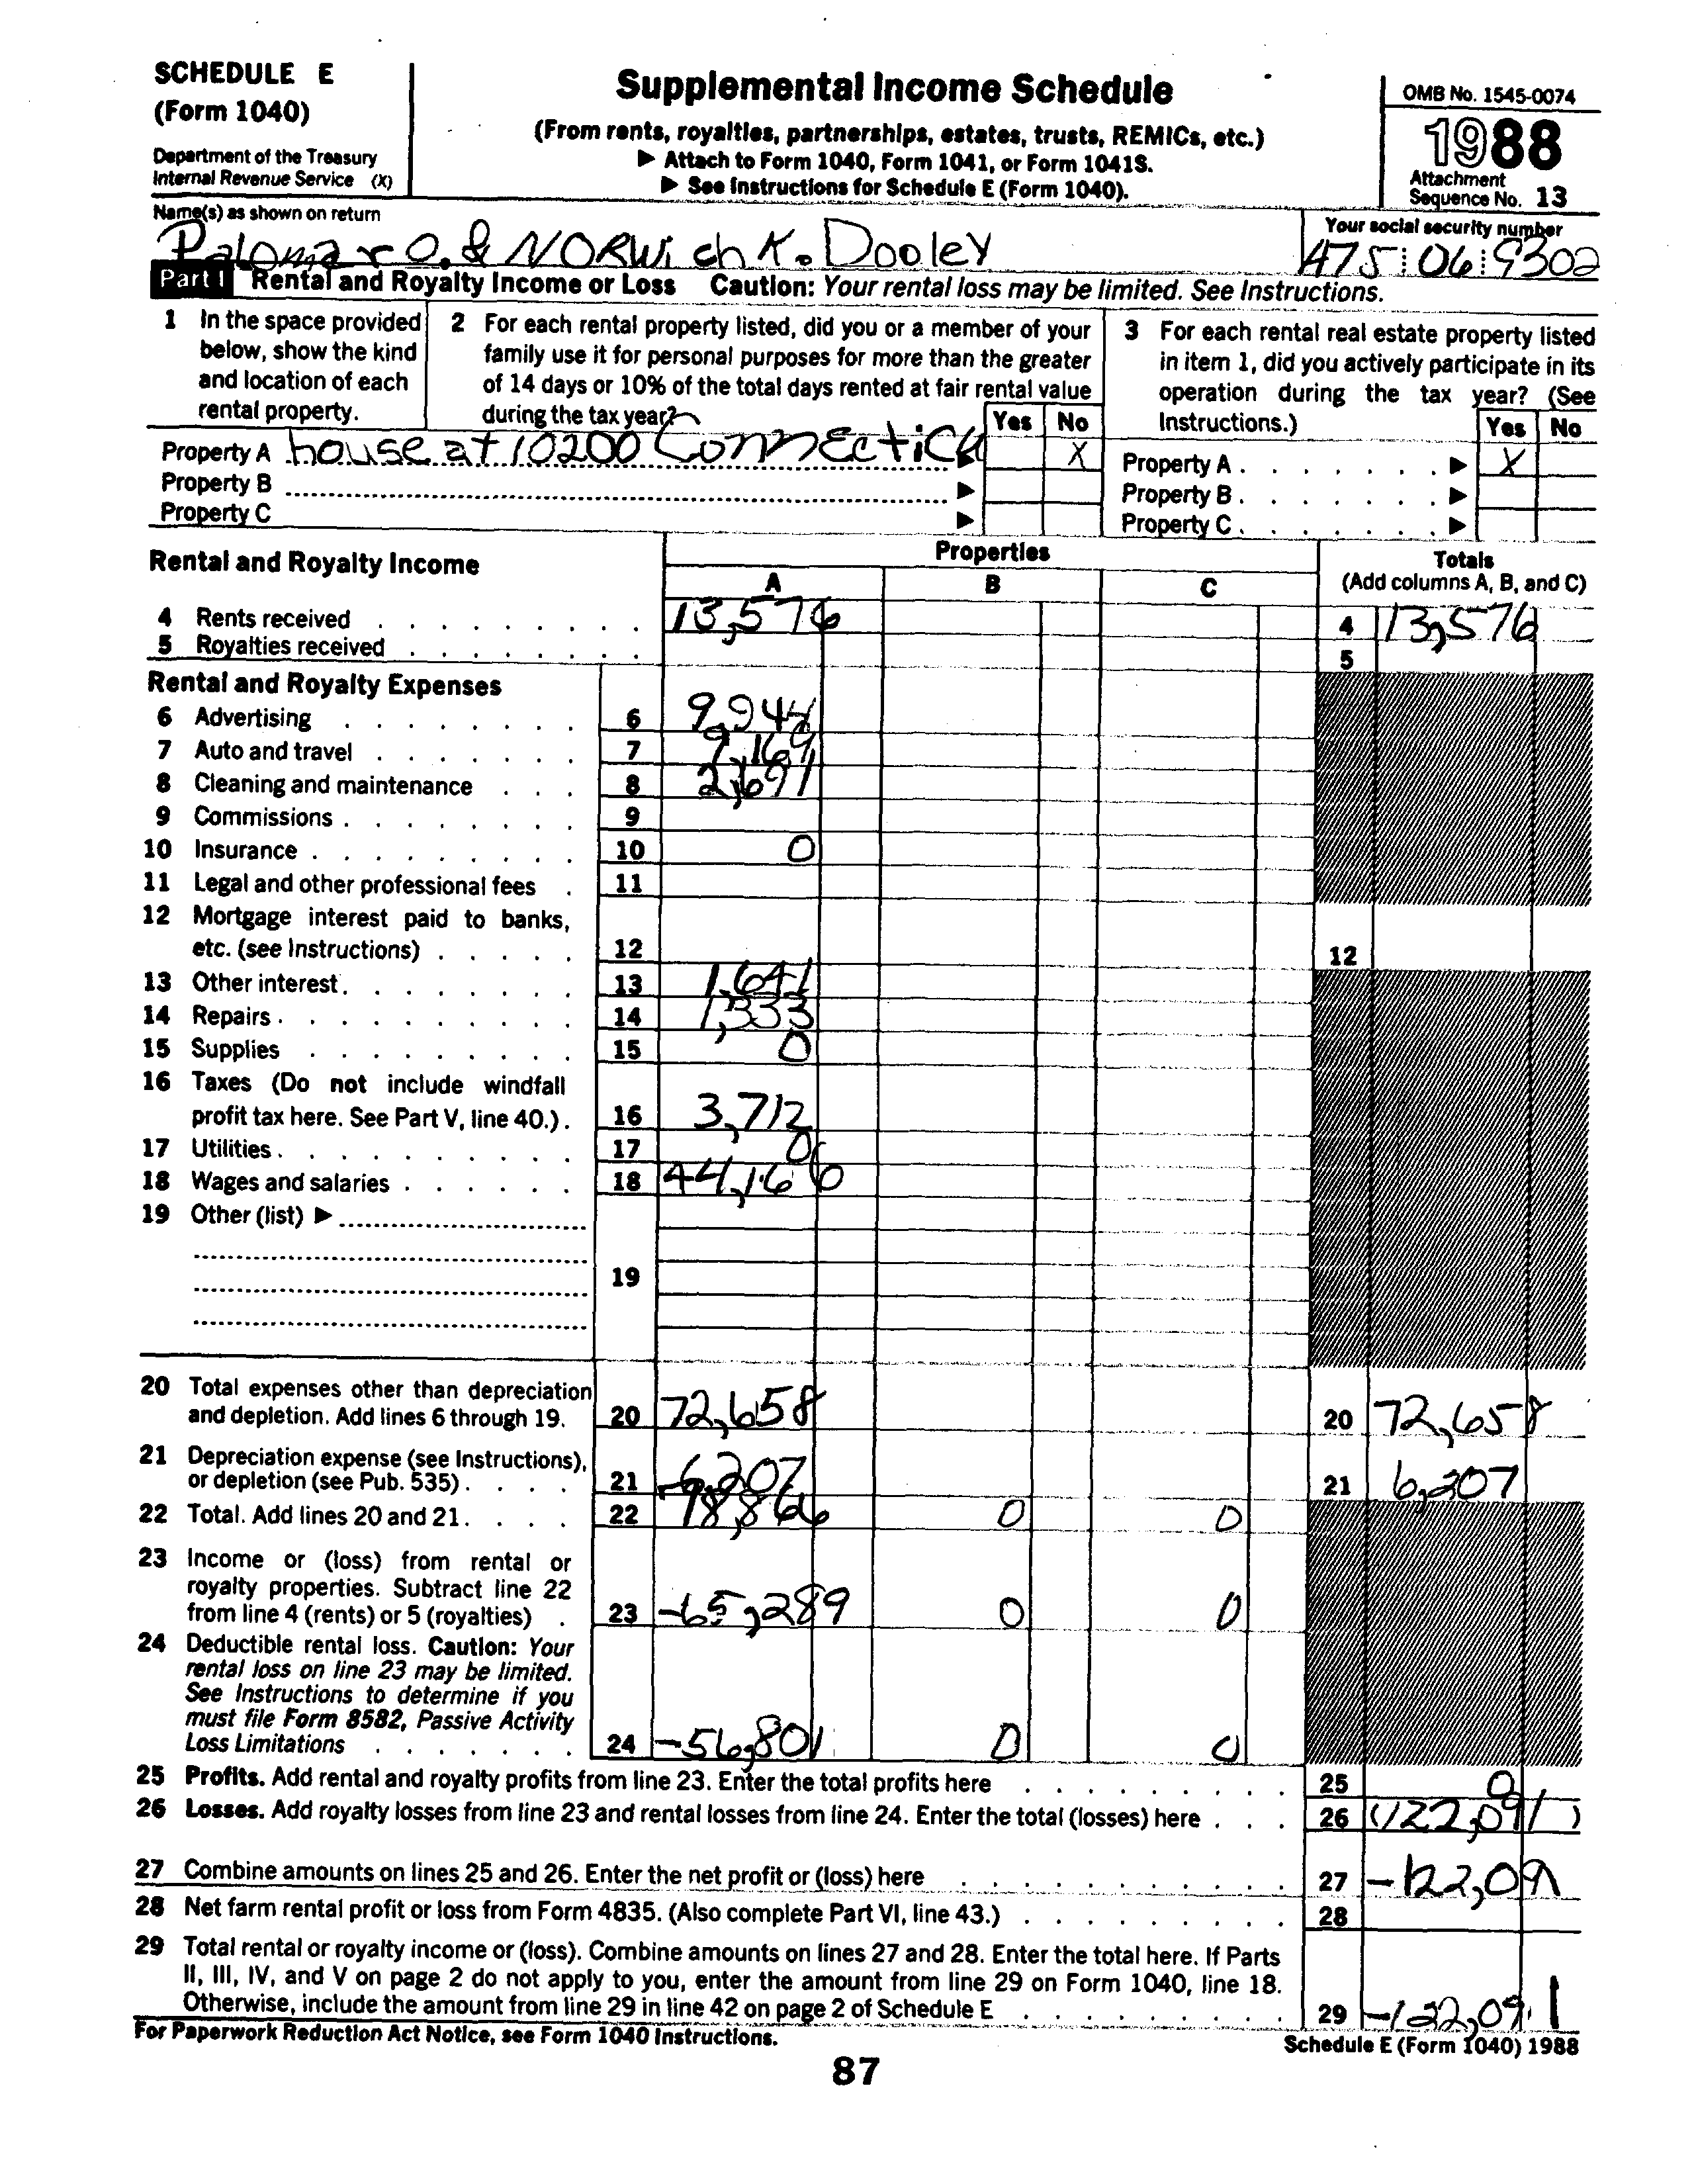 SCHEDULE E
(Form 1040)
Department of the Treasury
Internal Revenue Service (X)
Supplemental Income Schedule
(From rents, royalties, partnerships, estates, trusts, REMICs, etc.)
▶ Attach to Form 1040, Form 1041, or Form 1041S.
▶ See Instructions for Schedule E (Form 1040).
OMB No. 1545-0074
1988
Attachment
Sequence No. 13
Name(s) as shown on return
Palomar O. & NORWich K. Dooley
Your social security number
475 06 9302
Part I Rental and Royalty Income or Loss Caution: Your rental loss may be limited. See Instructions.
1 In the space provided
below, show the kind
and location of each
rental property.
2 For each rental property listed, did you or a member of your
family use it for personal purposes for more than the greater
of 14 days or 10% of the total days rented at fair rental value
during the tax year?
Yes No
3 For each rental real estate property listed
in item 1, did you actively participate in its
operation during the tax year? (See
Instructions.)
Yes No
Property A house at 10200 Connecticu ▶ X
Property B ▶
Property C ▶
Property A . . . . . . . ▶ X
Property B . . . . . . . ▶
Property C . . . . . . . ▶
Rental and Royalty Income
Properties
A B C
Totals
(Add columns A, B, and C)
4 Rents received 13,576 4 13,576
5 Royalties received 5
Rental and Royalty Expenses
6 Advertising 6 9,944
7 Auto and travel 7 9,169
8 Cleaning and maintenance 8 2,691
9 Commissions 9
10 Insurance 10 0
11 Legal and other professional fees 11
12 Mortgage interest paid to banks,
etc. (see Instructions) 12 12
13 Other interest 13 1,641
14 Repairs 14 1,333
15 Supplies 15 0
16 Taxes (Do not include windfall
profit tax here. See Part V, line 40.) 16 3,712
17 Utilities 17 0
18 Wages and salaries 18 44,166
19 Other (list) ▶
19
20 Total expenses other than depreciation
and depletion. Add lines 6 through 19. 20 72,658 20 72,658
21 Depreciation expense (see Instructions),
or depletion (see Pub. 535) 21 6,207 21 6,207
22 Total. Add lines 20 and 21. 22 78,866 0 0
23 Income or (loss) from rental or
royalty properties. Subtract line 22
from line 4 (rents) or 5 (royalties) 23 -65,289 0 0
24 Deductible rental loss. Caution: Your
rental loss on line 23 may be limited.
See Instructions to determine if you
must file Form 8582, Passive Activity
Loss Limitations 24 -56,801 0 0
25 Profits. Add rental and royalty profits from line 23. Enter the total profits here 25 0
26 Losses. Add royalty losses from line 23 and rental losses from line 24. Enter the total (losses) here 26 (122,091)
27 Combine amounts on lines 25 and 26. Enter the net profit or (loss) here 27 -122,091
28 Net farm rental profit or loss from Form 4835. (Also complete Part VI, line 43.) 28
29 Total rental or royalty income or (loss). Combine amounts on lines 27 and 28. Enter the total here. If Parts
II, III, IV, and V on page 2 do not apply to you, enter the amount from line 29 on Form 1040, line 18.
Otherwise, include the amount from line 29 in line 42 on page 2 of Schedule E 29 -122,091
For Paperwork Reduction Act Notice, see Form 1040 Instructions.
Schedule E (Form 1040) 1988
87